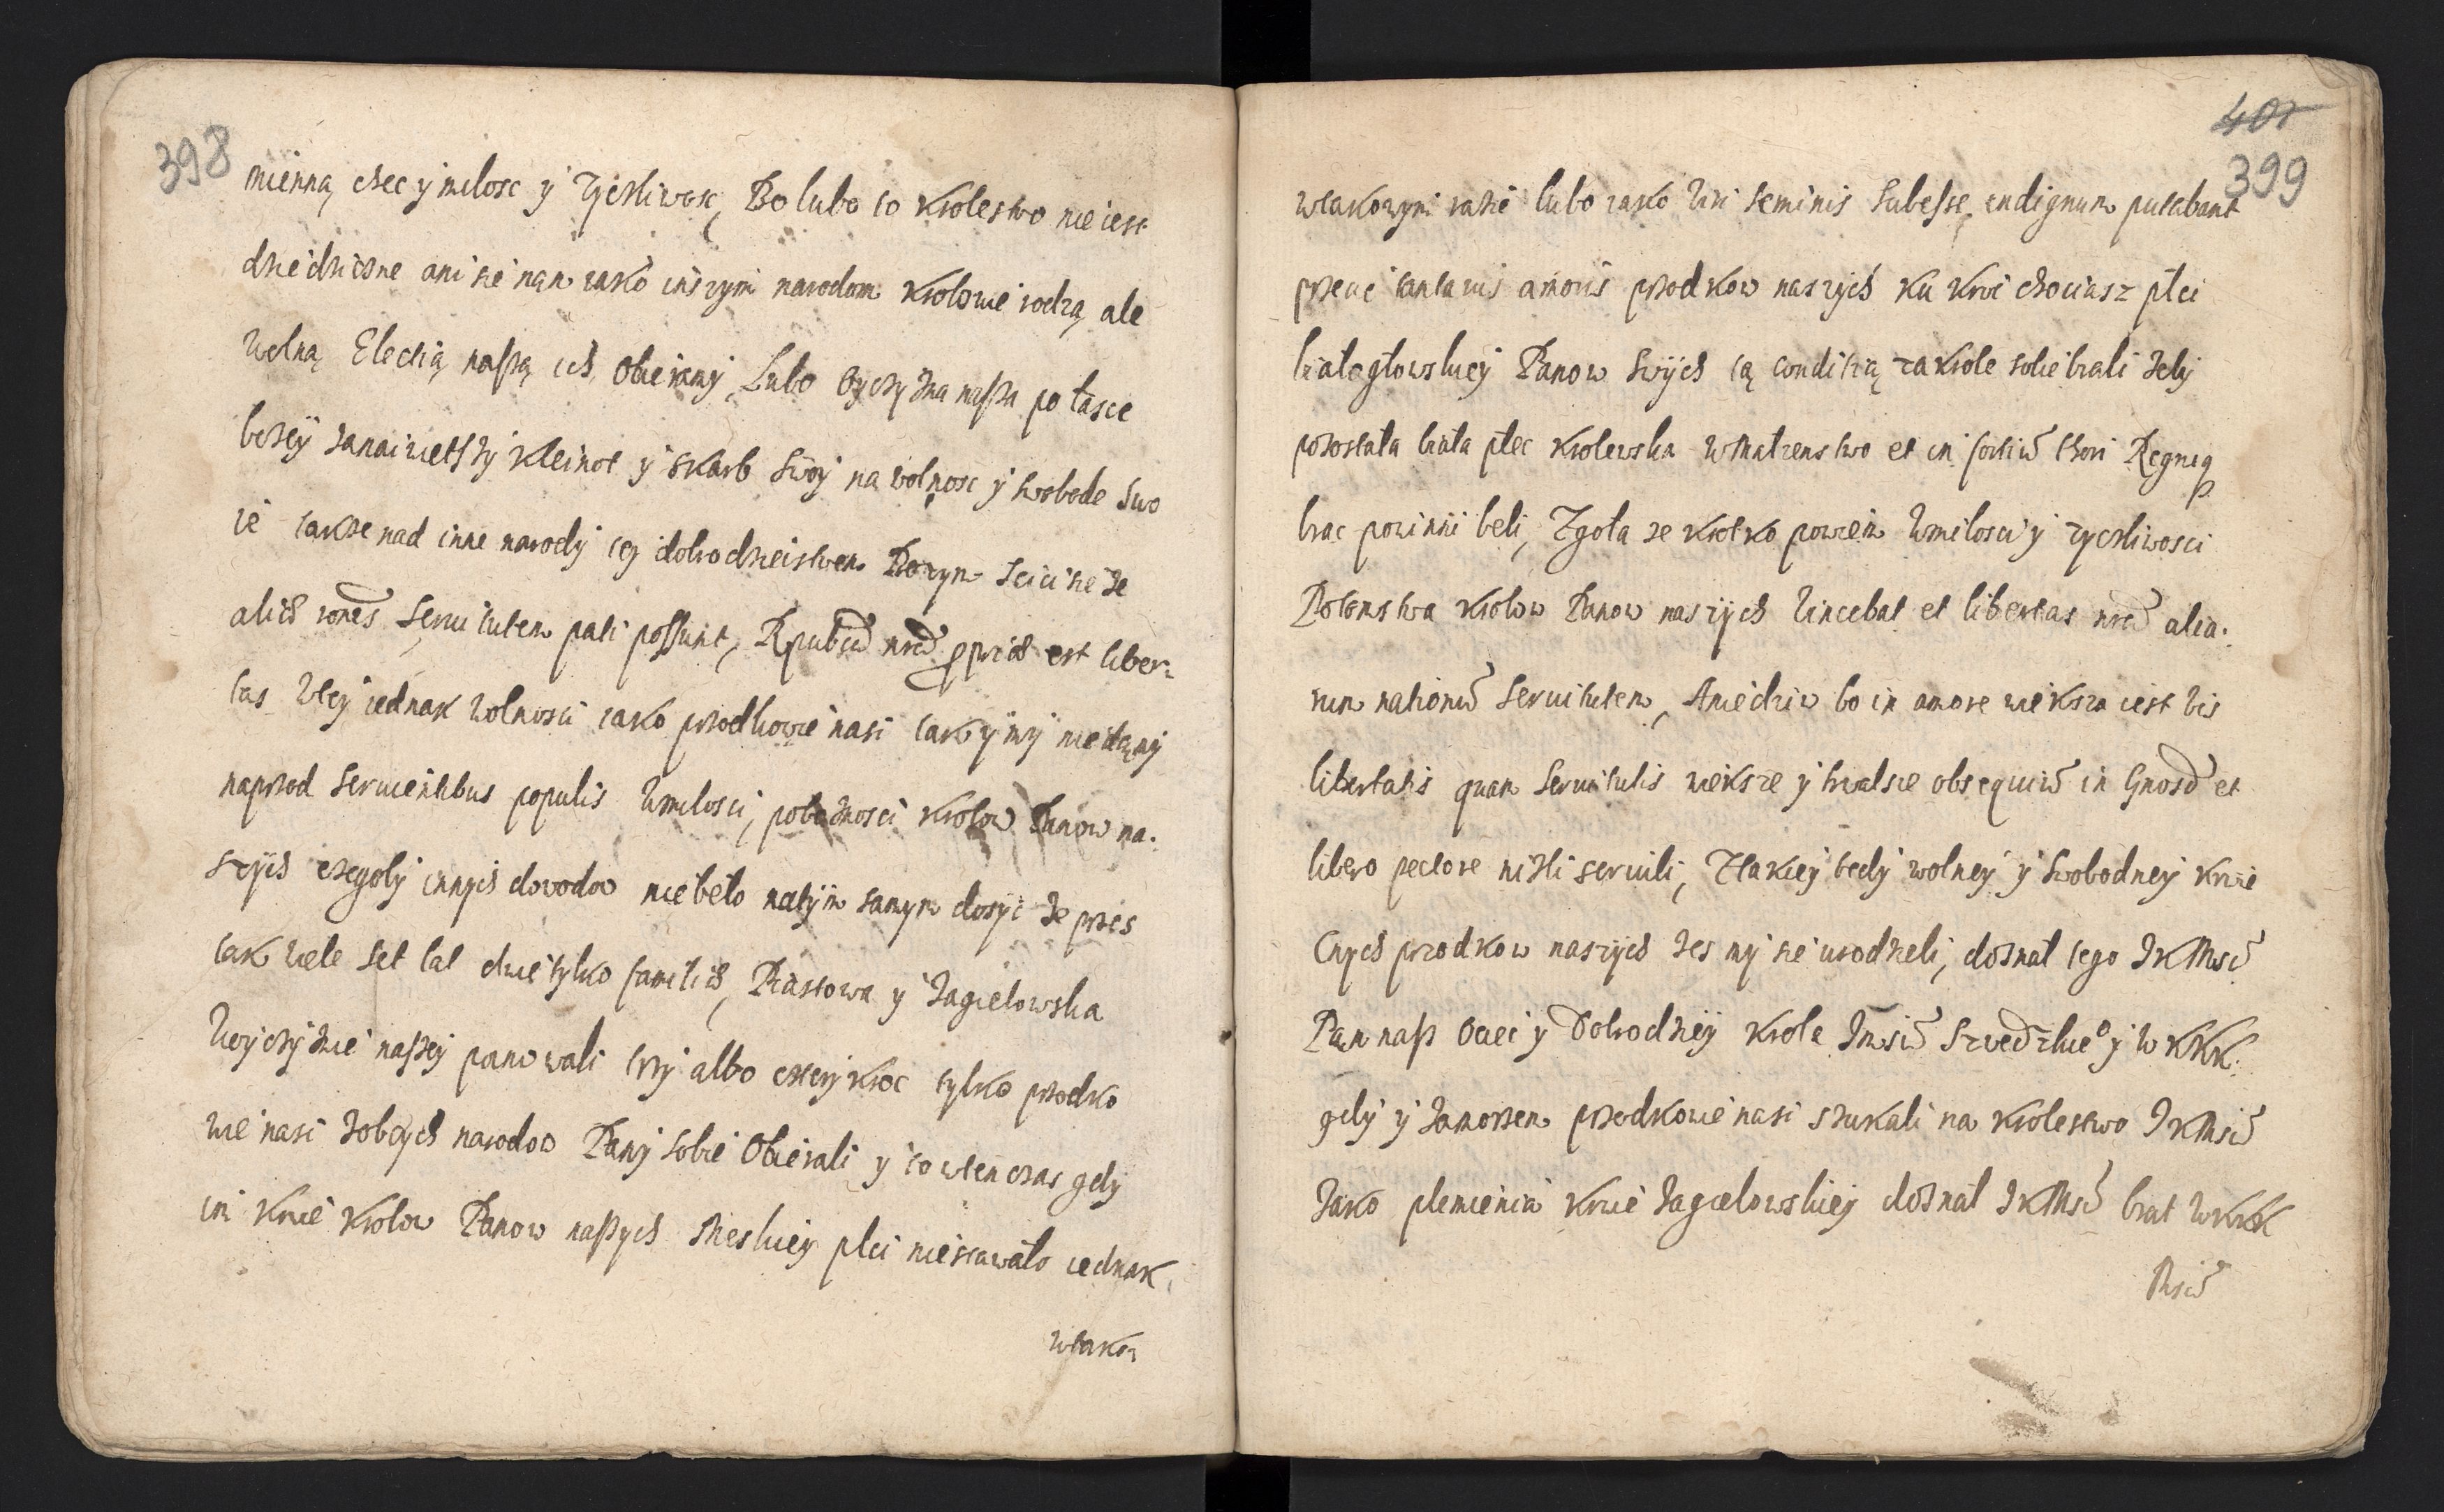 398
mienną chec y miłosc y zyczliwosc, Bo lubo to Krolestwo nie iest
dziedziczne ani sie nąm iako inszym narodom Krolowie rodzą ale
Wolną Elechią naszą ich Obieramy, Lubo Oyczyzna nasza po łasce
bozey zanaiwietszy Kleinot y skarb swoy na wolnosc y swobode swo
ie takze nad inne narody tey dobrodzieistwem Bozym scici sie ze
aliæ nōnes Seruitutem pati possunt, Rpubcæ nræ ꝓpria est liber-
tas Wtey iednak Wolnosci iako przodkowie nasi tak y my nie damy
naprzod Seruientibus populis Wmiłosci, pobożnosci Krolow Panow na-
szych czegoby innych dowodow nie beło natym samym dosyc ze przes
tak wiele set lat dwie tylko familiæ, Piastowa y Jagielowska
Woyczyznie naszey panowali trzy albo czterykroc tylko przodko
wie nasi Zobcych narodow Pany sobie Obierali y to wten czas gdy
im Krwie Krolow Panow naszych Meskiey płci niestawało iednak
wtako-
401
399
wtakowym razie lubo iako Viri seminis subesse indignum putabant
przecie tanta vis amoris przodkow naszych Ku Krwi chociasz płci
białogłowskiey Panow swych tą conditią zakrole sobie brali zeby
pozostała biała płec Krolewska wMałzenstwo et in sortiū thori Regniq
brac powinni beli, Zgoła ze krotko powiem Wmiłosci y zyczliwosci
Potomstwa Krolow Panow naszych Vincebat et libertas nrā alia-
rum nationū Seruitutem, Aniedziw bo in amore wieksza iest vis
libertatis quam Seruitutis wieksze y trwalsze obsequiū in Gnoso et
libero pectore nizli seruili, Ztakiey tedy wolney y swobodney krwie
Cnych przodkow naszych zes my sie urodzieli, doznał tego JKMsc
Pan nasz Ociec y Dobrodziey Krola Jmsci Szwedzkie° y WKKK.
gdy y Zamorzem przodkowie nasi szukali na Krolestwo JKMsci
Jako plemienia Krwie Jagielowskiey doznał JKMsc brat WKKK
Msci